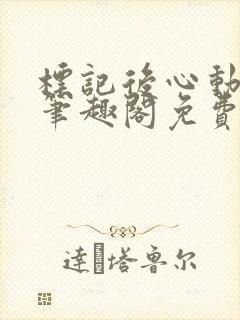 標記後心動
筆趣閣免費
達·塔魯尔